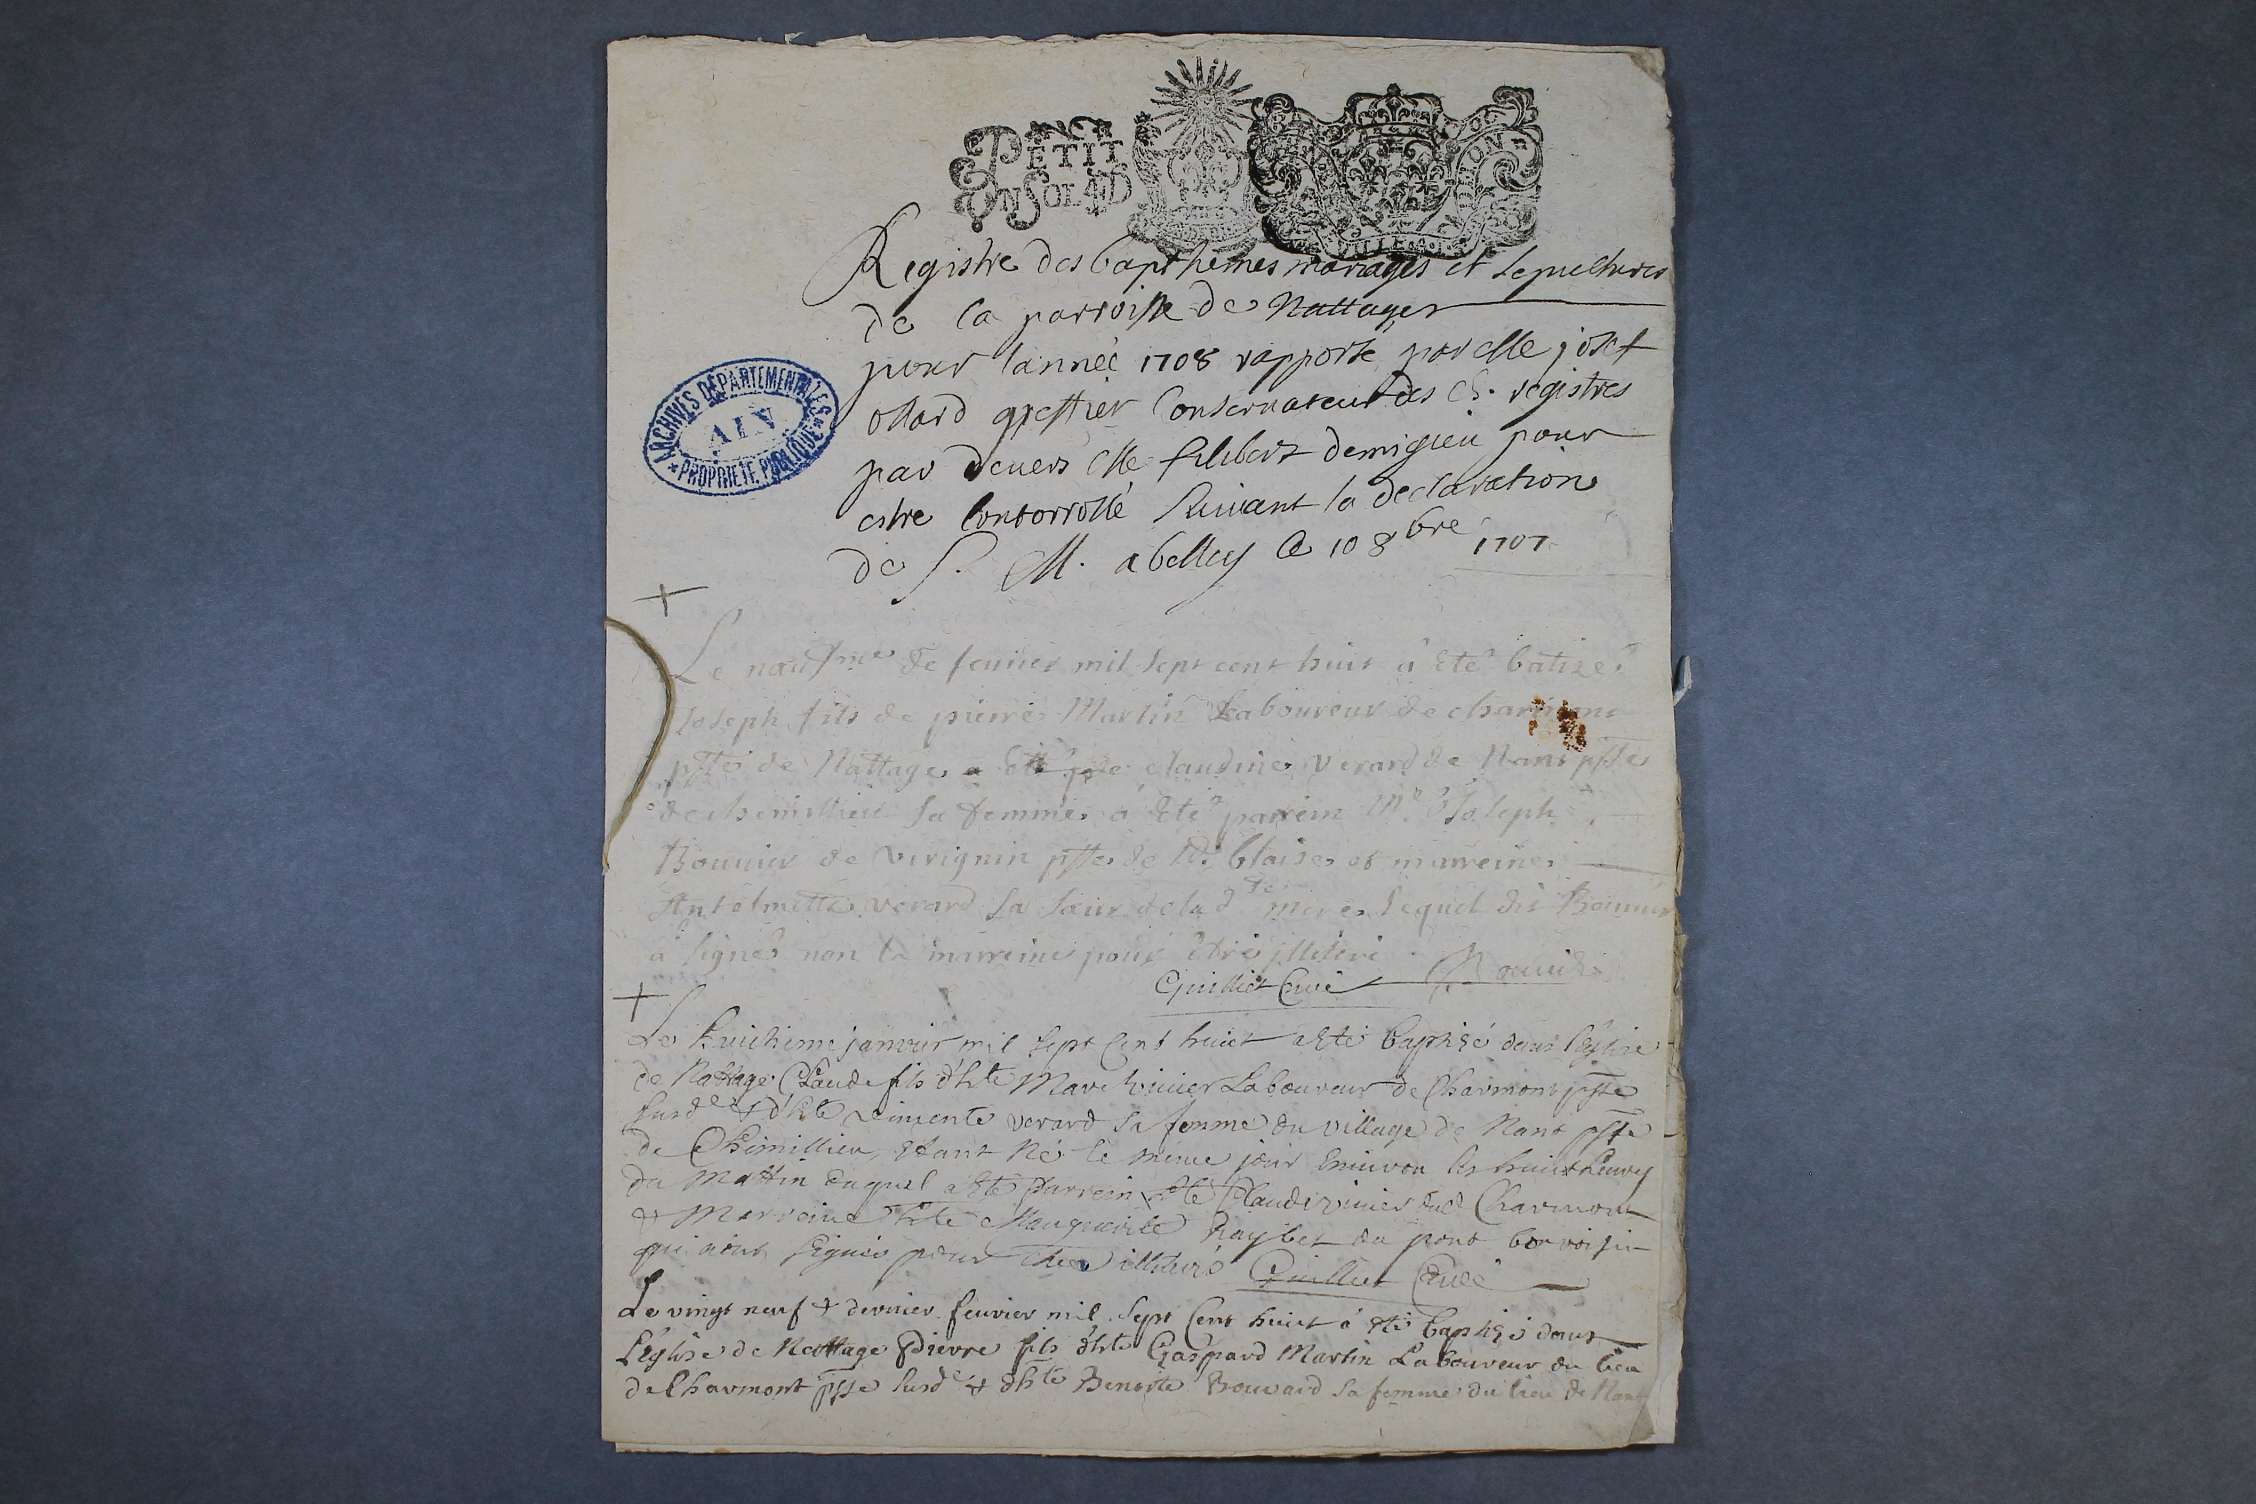 PETIT
EN SOL 4 D
LION
Registre des bapthemes mariages et sepultures
de la parroisse de Nattages
pour lannéé 1708 rapporté par Me josef
ollard greffier Conseruateur des d. registres
par deuers Me filibert demigieu pour
estre Contorrollé Suiuant la declaration
de S. M. a belley le 10 8bre 1707
ARCHIVES DÉPARTEMENTALES
AIN
PROPRIÉTÉ PUBLIQUE
Le neufme de feurier mil sept cent huit a été batizé
Joseph fils de pierre Martin Laboureur de charmont
psse de Nattage claudine Verard de Nant psse
de chemillieu sa femme a été parrein Me Joseph
Bouuier de virignin psse de St blaise et marreine
Antelmette verard sa sœur de lad mere lequel dit Bouuier
a signé non la marreine pour être illiteré
Guilliet Curé Bouuier
Le huictieme janvier mil sept Cent huict a Eté baptisé dans l'Eglise
de Nattage Claude fils d'hte Marc vinier Laboureur de Charmont psse
susde & d'hte verard sa femme du village de Nant psse
de Chimillieu, Etant Né le même jour Enuiron les huict heures
du Mattin duquel a Eté Parrein hte Claude vinier dud Charmont
& Marreine hte Marguerite Raybet du pont bonvoisin
qui n'ont signés pour Etre illiterés Guilliet Curé
Le vingt neuf & dernier feurier mil sept Cent huict a Eté baptisé dans
L'Eglise de Nattage Pierre fils d'hte Gaspard Martin Laboureur du lieu
de Charmont psse susde & d'hte Benoite Bouvard sa femme du lieu de Nant